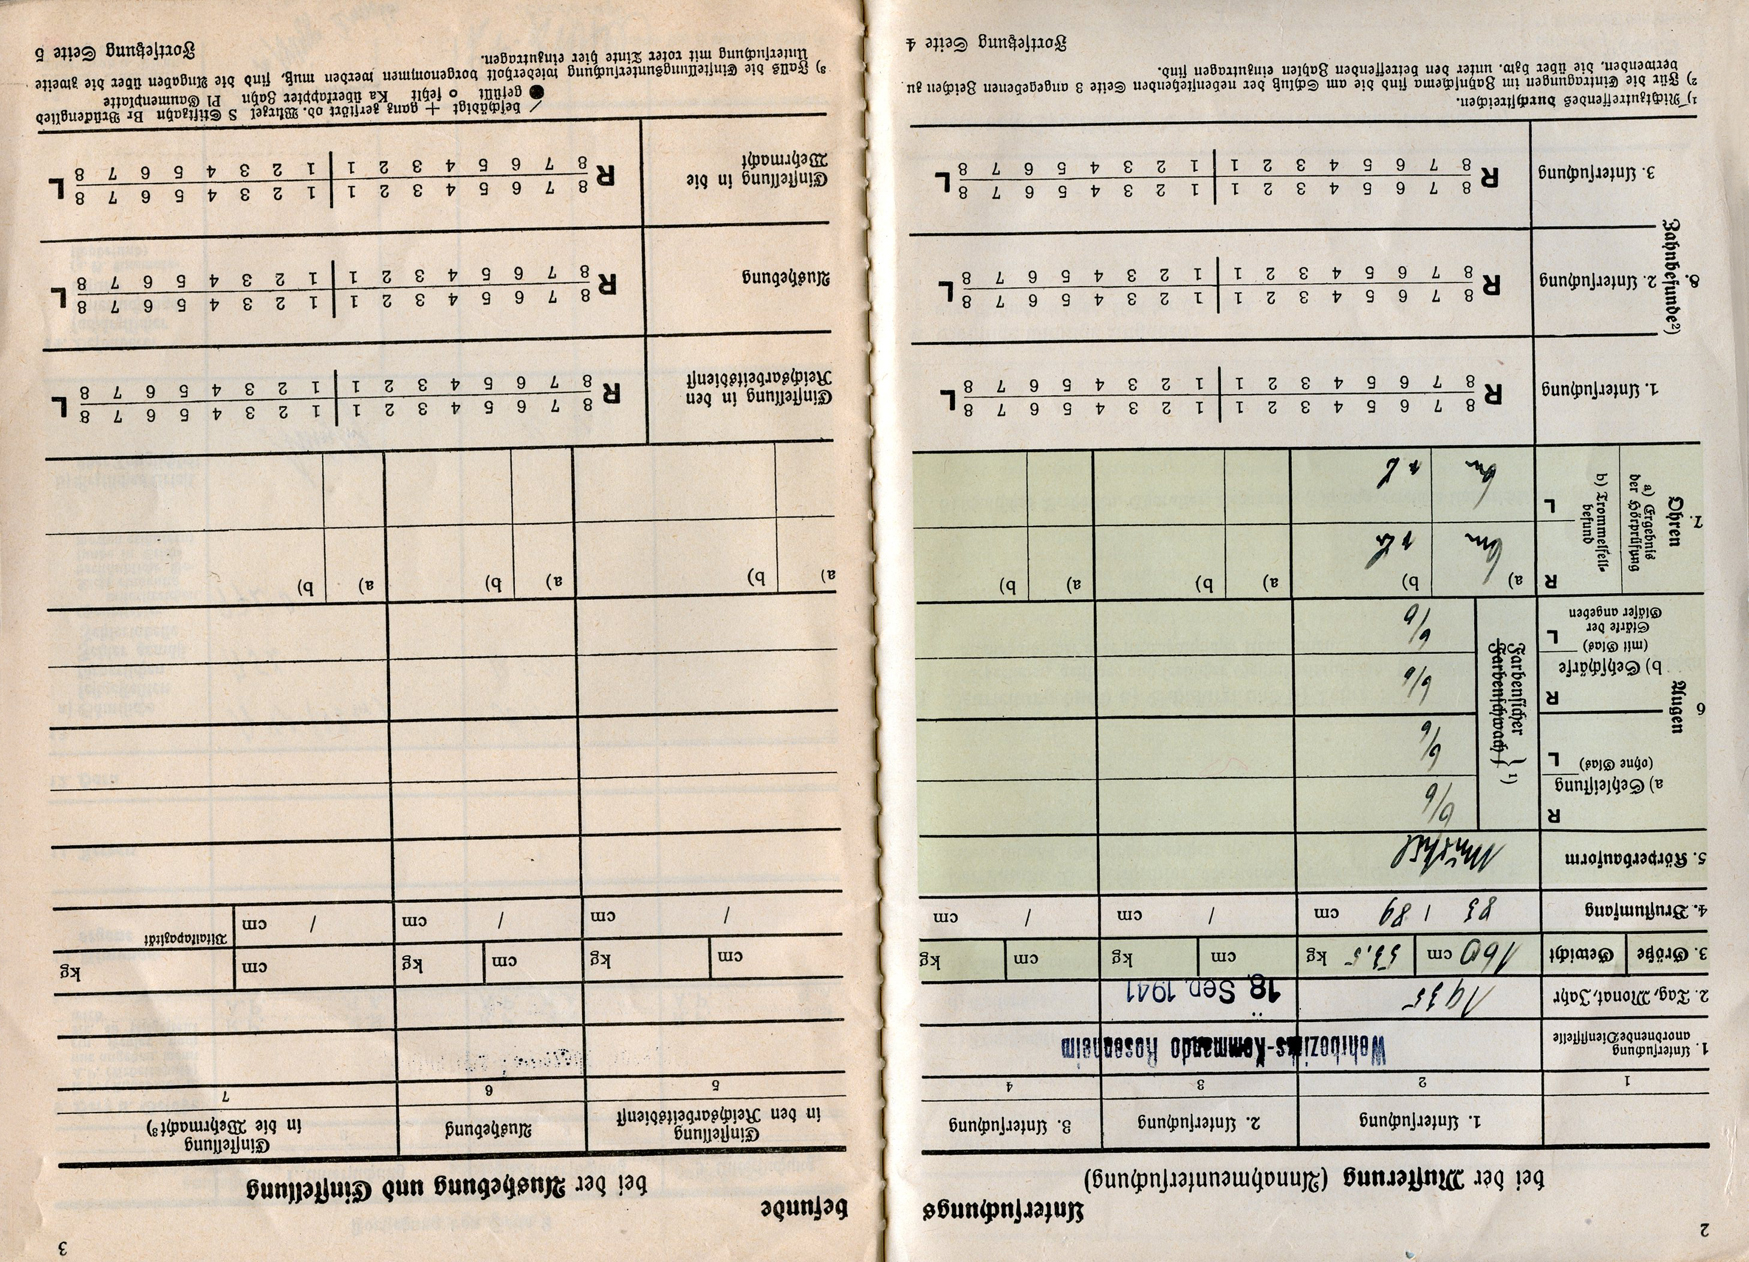 2
Untersuchungs
bei der Musterung (Annahmeuntersuchung)
1. Untersuchung 2. Untersuchung 3. Untersuchung
1 2 3 4
1. Untersuchung anordnende Dienststelle
Wehrbezirks-Kommando Rosenheim
2. Tag, Monat, Jahr 18. Sep. 1941
3. Größe Gewicht 160 cm 53,5 kg cm kg cm kg
4. Brustumfang 83 / 89 cm / cm / cm
5. Körperbauform
6 Augen
a) Sehleistung (ohne Glas) R 6/6
L 6/6
Farbensicher
Farbenschwach } ¹)
b) Sehschärfe (mit Glas) Stärke der Gläser angeben R 6/6
L 6/6
7. Ohren
a) Ergebnis der Hörprüfung
b) Trommelfellbefund
R a) 6m b) a) b) a) b)
L 6m
8. Zahnbefunde²)
1. Untersuchung R 8 7 6 5 4 3 2 1 | 1 2 3 4 5 6 7 8 L
8 7 6 5 4 3 2 1 | 1 2 3 4 5 6 7 8
2. Untersuchung R 8 7 6 5 4 3 2 1 | 1 2 3 4 5 6 7 8 L
8 7 6 5 4 3 2 1 | 1 2 3 4 5 6 7 8
3. Untersuchung R 8 7 6 5 4 3 2 1 | 1 2 3 4 5 6 7 8 L
8 7 6 5 4 3 2 1 | 1 2 3 4 5 6 7 8
¹) Nichtzutreffendes durchstreichen.
²) Für die Eintragungen im Zahnschema sind die am Schluß der nebenstehenden Seite 3 angegebenen Zeichen zu
verwenden, die über bzw. unter den betreffenden Zahlen einzutragen sind.
Fortsetzung Seite 4
3
befunde
bei der Aushebung und Einstellung
Einstellung in den Reichsarbeitsdienst Aushebung Einstellung in die Wehrmacht³)
5 6 7
cm kg cm kg cm kg
/ cm / cm / cm Vitalkapazität
a) b) a) b) a) b)
Einstellung in den Reichsarbeitsdienst R 8 7 6 5 4 3 2 1 | 1 2 3 4 5 6 7 8 L
8 7 6 5 4 3 2 1 | 1 2 3 4 5 6 7 8
Aushebung R 8 7 6 5 4 3 2 1 | 1 2 3 4 5 6 7 8 L
8 7 6 5 4 3 2 1 | 1 2 3 4 5 6 7 8
Einstellung in die Wehrmacht R 8 7 6 5 4 3 2 1 | 1 2 3 4 5 6 7 8 L
8 7 6 5 4 3 2 1 | 1 2 3 4 5 6 7 8
/ beschädigt + ganz zerstört od. Wurzel S Stiftzahn Br Brückenglieb
● gefüllt o fehlt Ka überkappter Zahn Pl Gaumenplatte
³) Falls die Einstellungsuntersuchung wiederholt vorgenommen werden muß, sind die Angaben über die zweite
Untersuchung mit roter Tinte hier einzutragen.
Fortsetzung Seite 5